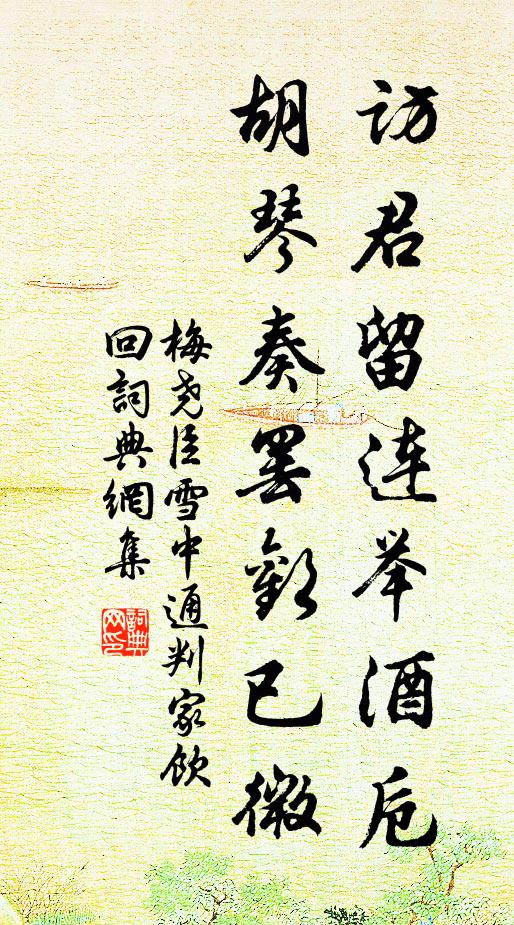 访君留连举酒卮
胡琴奏罢欢已微
梅尧臣雪中通判家饮
回詞典網集
詞典
网印